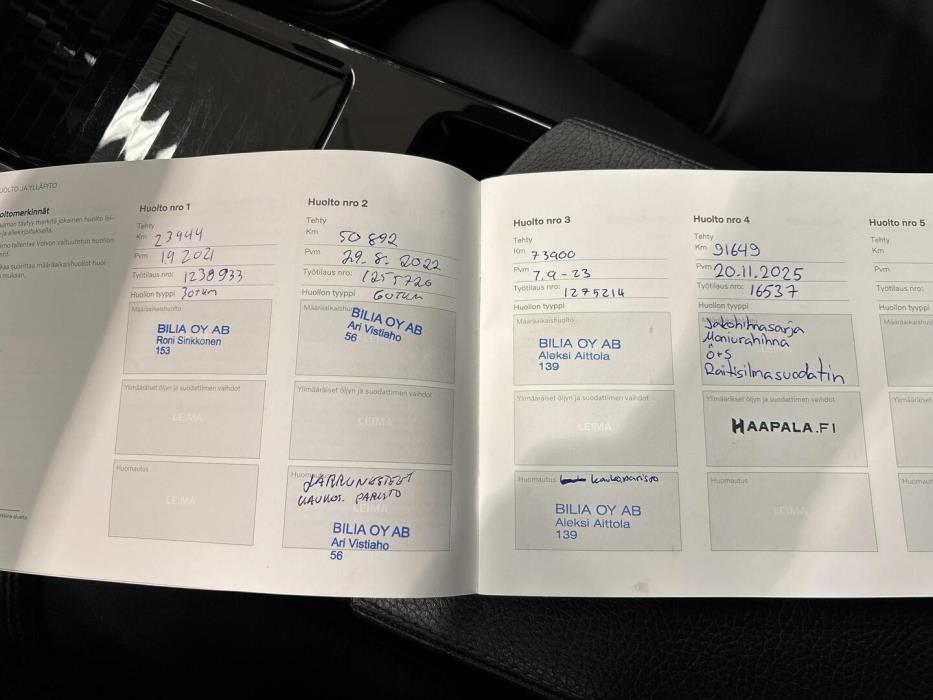 HUOLTO JA YLLÄPITO
Huolto nro 1
Tehty
Km 23944
Pvm 1.9 2021
Työtilaus nro: 1238933
Huollon tyyppi 30tkm
Määräaikaishuolto
BILIA OY AB
Roni Sinkkonen
153
Ylimääräiset öljyn ja suodattimen vaihdot
LEIMA
Huomautus
LEIMA
Huolto nro 2
Tehty
Km 50 892
Pvm 29.8.2022
Työtilaus nro: 1255726
Huollon tyyppi 60TKM
Määräaikaishuolto
BILIA OY AB
Ari Vistiaho
56
Ylimääräiset öljyn ja suodattimen vaihdot
LEIMA
Huomautus
JARRUNESTEET
KAUKOS. PARISTO
LEIMA
BILIA OY AB
Ari Vistiaho
56
Huolto nro 3
Tehty
Km 73900
Pvm 7.9-23
Työtilaus nro: 1275214
Huollon tyyppi
Määräaikaishuolto
BILIA OY AB
Aleksi Aittola
139
Ylimääräiset öljyn ja suodattimen vaihdot
LEIMA
Huomautus kaukoparisto
BILIA OY AB
Aleksi Aittola
139
Huolto nro 4
Tehty
Km 91649
Pvm 20.11.2025
Työtilaus nro: 16537
Huollon tyyppi
Jakohihnasarja
Moniurahihna
Ö+S
Raitisilmasuodatin
Ylimääräiset öljyn ja suodattimen vaihdot
HAAPALA.FI
Huomautus
LEIMA
Huolto nro 5
Tehty
Km
Pvm
Työtilaus nro:
Huollon tyyppi